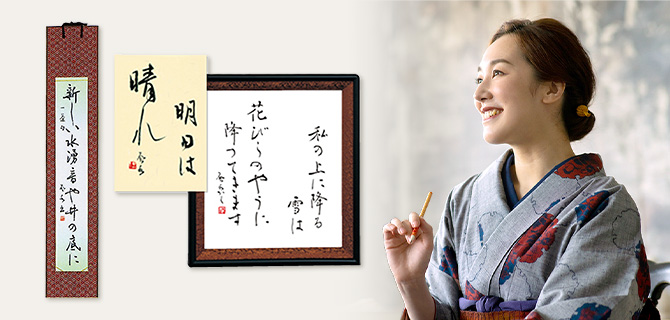 新しい水湧音や井の底に
明日は
晴れ
私の上に降る
雪は
花びらのやうに
降つてきます